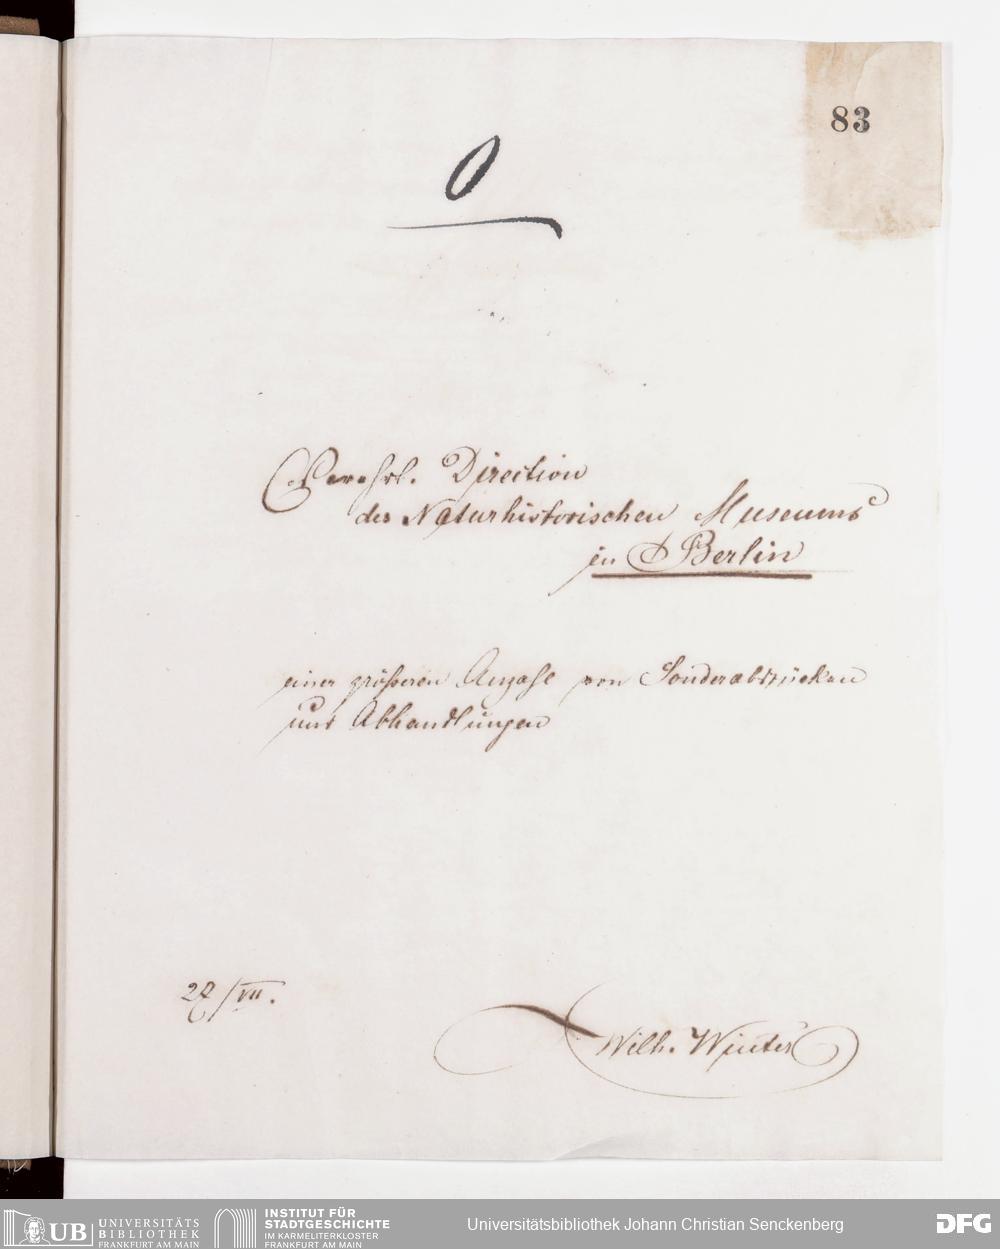 83
0
Verehrl. Direction
des Naturhistorischen Museums
in Berlin
einer größeren Anzahl von Sonderabdrücken
und Abhandlungen
27/VII.
Wilh. Winter
UB UNIVERSITÄTS BIBLIOTHEK FRANKFURT AM MAIN
INSTITUT FÜR STADTGESCHICHTE IM KARMELITERKLOSTER FRANKFURT AM MAIN
Universitätsbibliothek Johann Christian Senckenberg
DFG